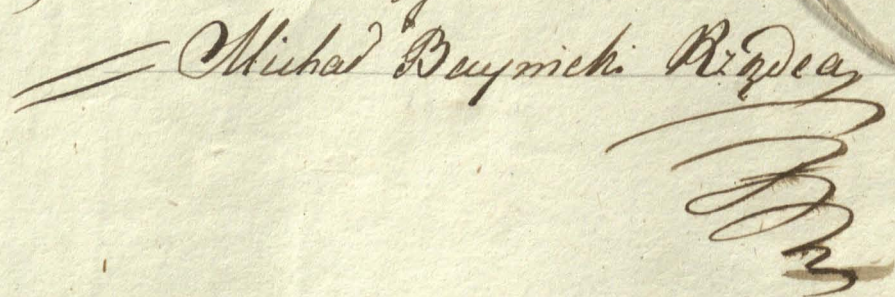 Michał Bacynicki Rządca